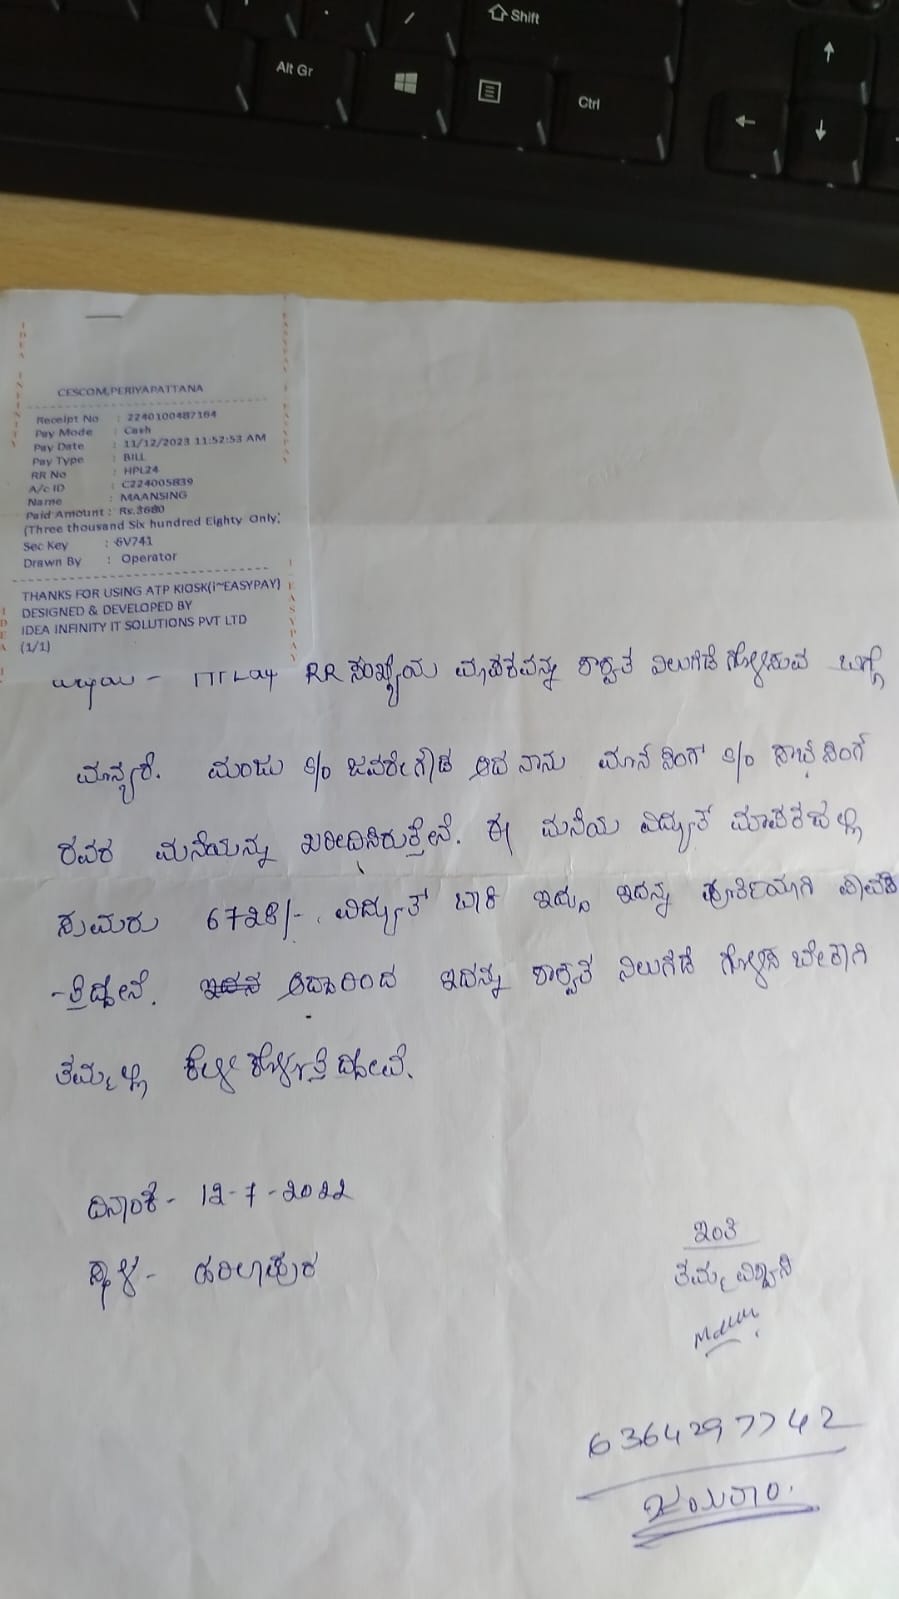 Shift
Alt Gr
Ctrl
CESCOM,PERIYAPATTANA
Receipt No : 2240100487164
Pay Mode : Cash
Pay Date : 11/12/2023 11:52:53 AM
Pay Type : BILL
RR No : HPL24
A/c ID : C224005839
Name : MAANSING
Paid Amount : Rs.3680
(Three thousand Six hundred Eighty Only:
Sec Key : 6V741
Drawn By : Operator
THANKS FOR USING ATP KIOSK(i~EASYPAY)
DESIGNED & DEVELOPED BY
IDEA INFINITY IT SOLUTIONS PVT LTD
(1/1)
RR ಸಂಖ್ಯೆಯ ಮಾಪಕವನ್ನು ಶಾಶ್ವತ ನಿಲುಗಡೆ ಗೊಳಿಸುವ ಬಗ್ಗೆ
ಮಾನ್ಯರೆ. ಮಂಜು S/o ಜವರೇಗೌಡ ಆದ ನಾನು ಮಾನ ಸಿಂಗ್ S/o ಸಿಂಗ್
ರವರ ಮನೆಯನ್ನು ಖರೀದಿಸಿರುತ್ತೇನೆ. ಈ ಮನೆಯ ವಿದ್ಯುತ್ ಮಾಪಕದಲ್ಲಿ
ಸುಮಾರು 6728/- ವಿದ್ಯುತ್ ಬಾಕಿ ಇದ್ದು ಇದನ್ನು ಪೂರ್ತಿಯಾಗಿ ಪಾವತಿ
-ತ್ತಿದ್ದೇನೆ. ಆದ್ದಾರಿಂದ ಇದನ್ನು ಶಾಶ್ವತ ನಿಲುಗಡೆ ಗೊಳಿಸ ಬೇಕಾಗಿ
ತಮ್ಮಲ್ಲಿ ಕೇಳಿ ಕೊಳ್ಳುತ್ತಿದ್ದೇವೆ.
ದಿನಾಂಕ - 12-7-2022
ಸ್ಥಳ - ಹರಿಲಾಪುರ
ಇಂತಿ
ತಮ್ಮ ವಿಶ್ವಾಸಿ
6364297742